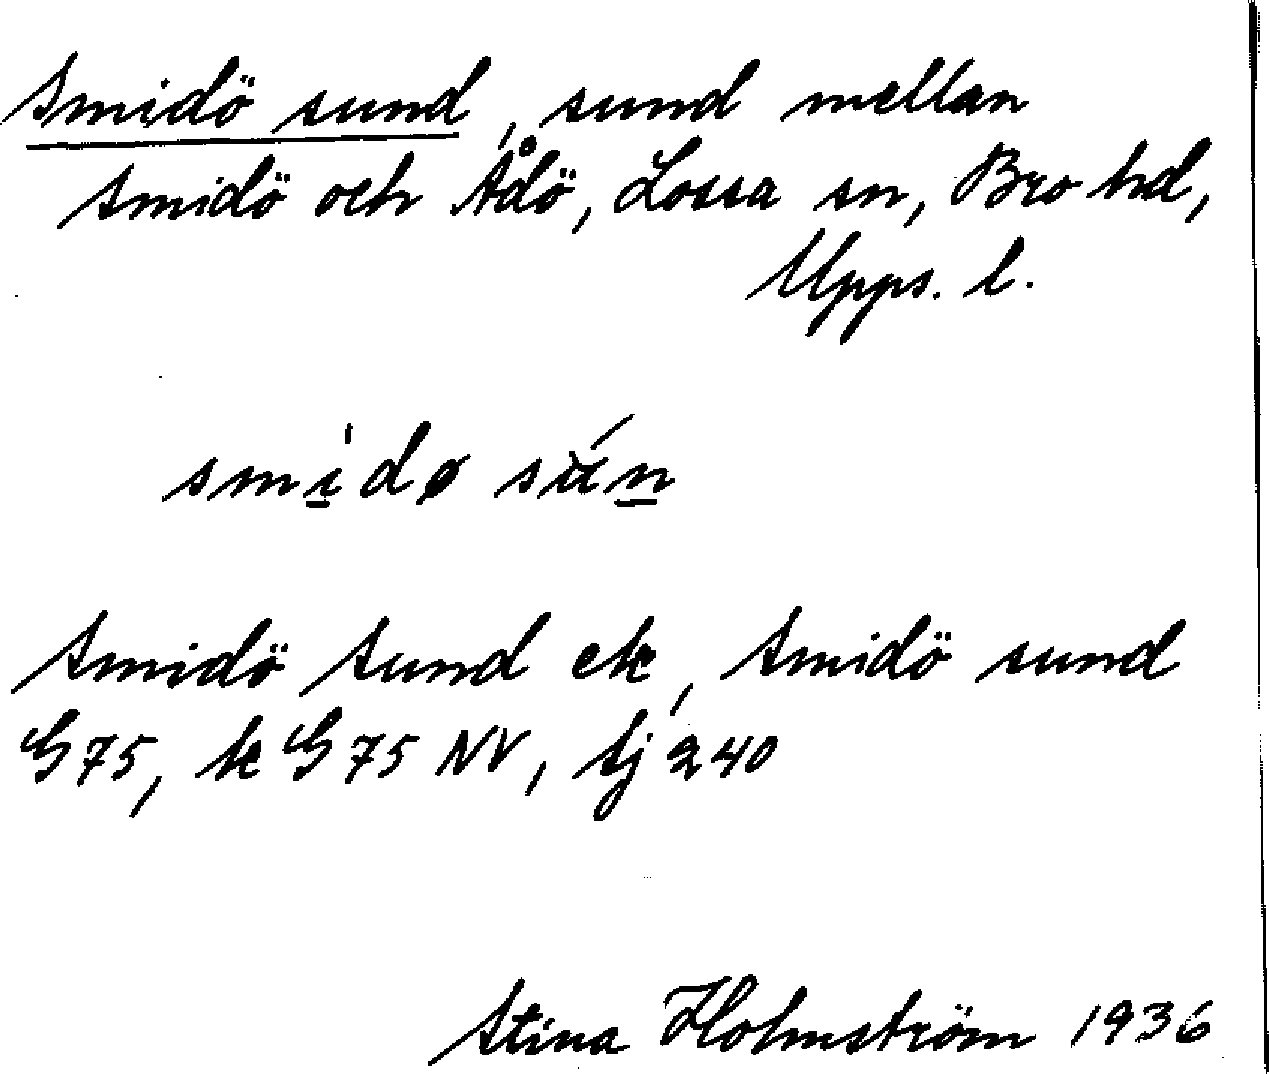 Smidö sund, sund mellan
Smidö och Ådö, Lossa sn, Bro hd,
Upps. l.
smi̲dø sún̲
Smidö Sund ek, Smidö sund
G 75, k G 75 NV, sj 240
Stina Holmström 1936